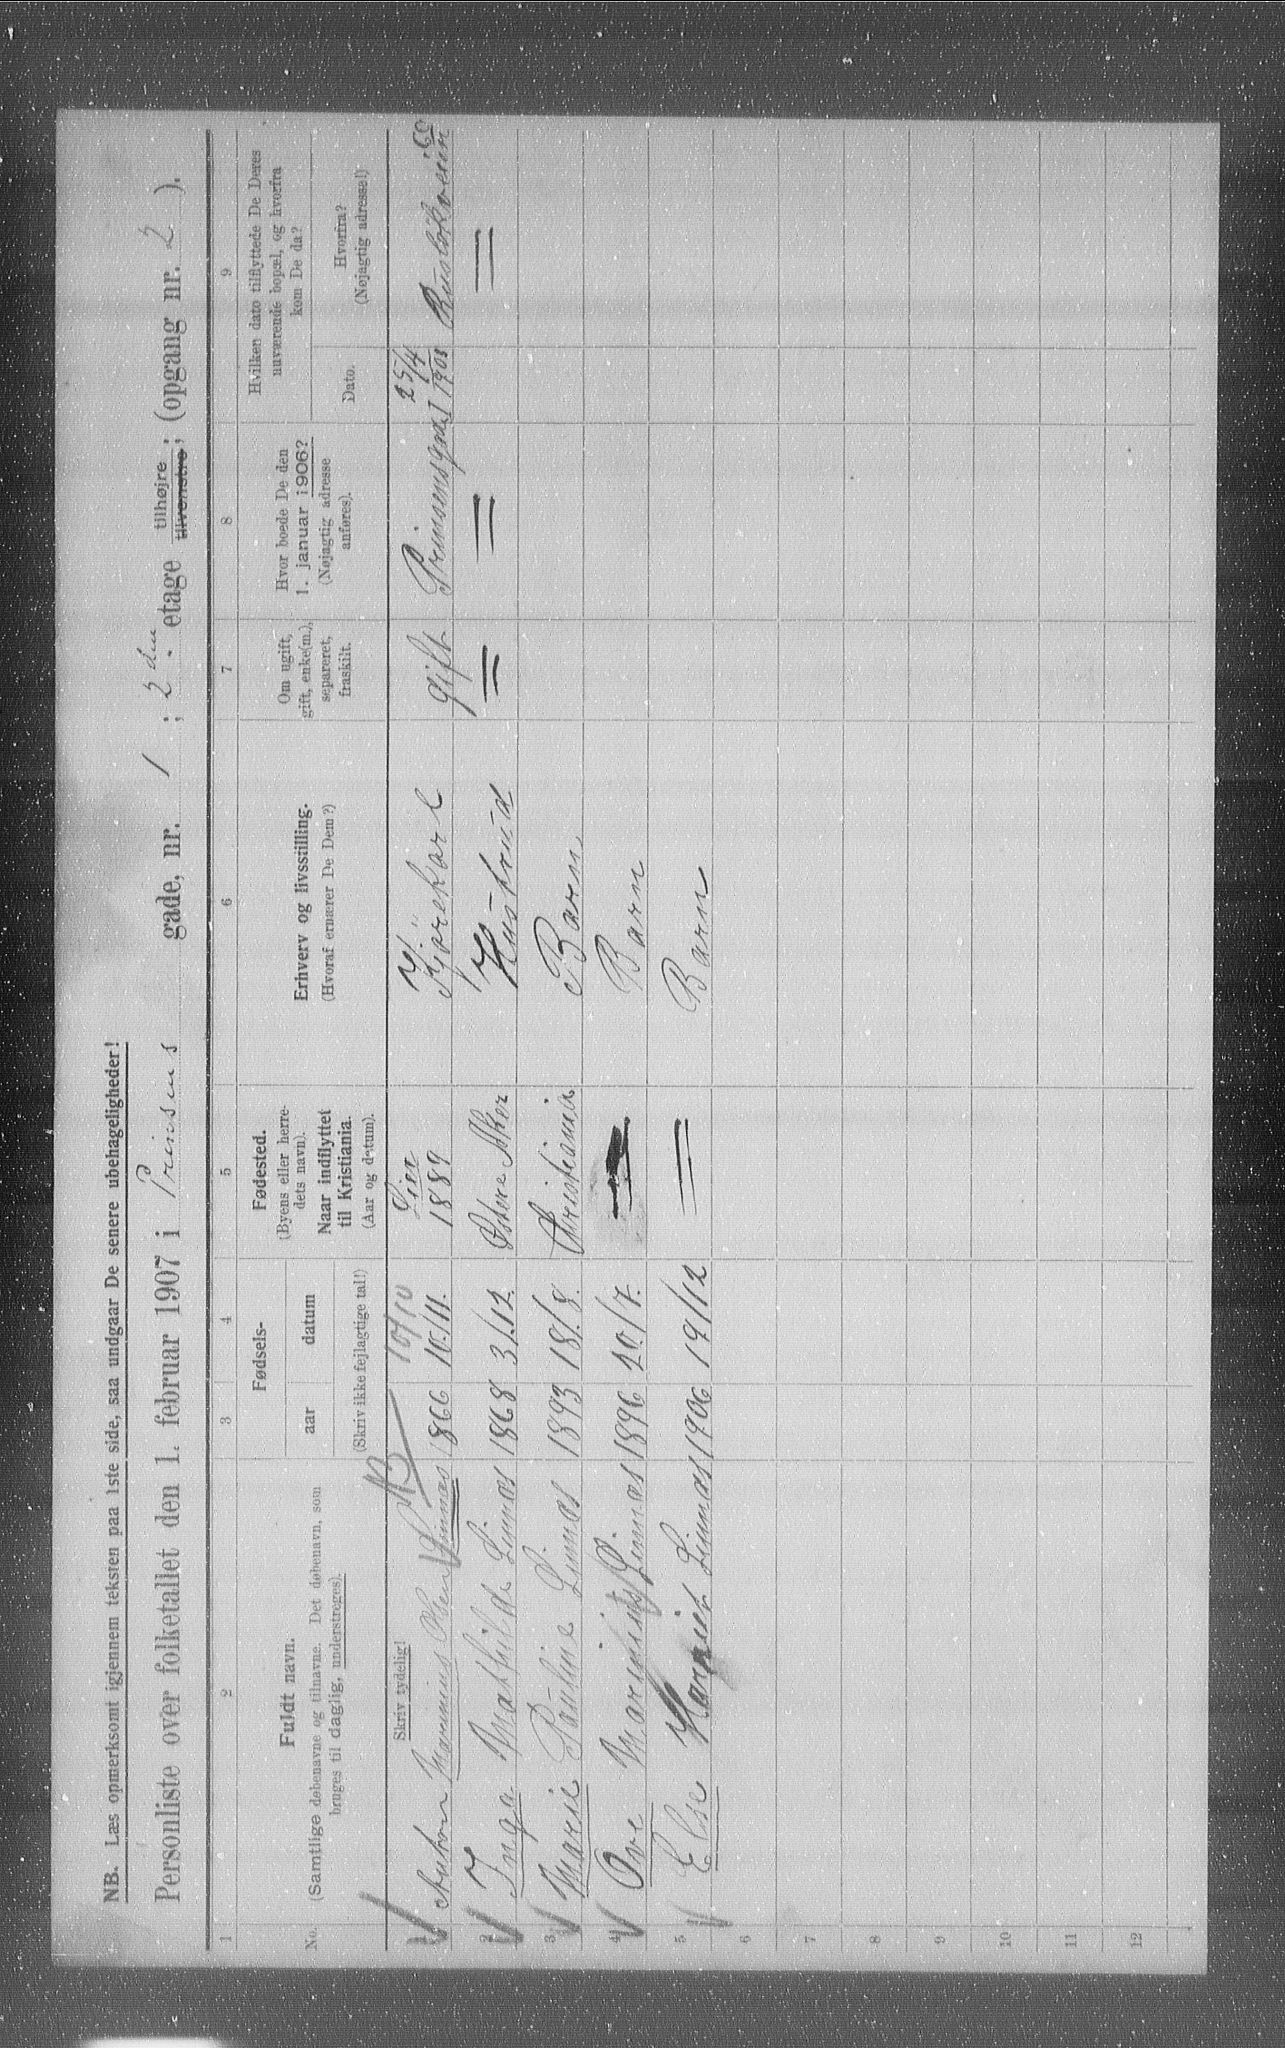 NB. Læs opmerksomt igjennem teksten paa 1ste side, saa undgaar De senere ubehageligheder!
Personliste over folketallet den 1. februar 1907 i Prinsens gade, nr. 1 ; 2den . etage tilhøjre tilvenstre ; (opgang nr. 2 ).
1 2 3 4 5 6 7 8 9
No.
Fuldt navn.
(Samtlige døbenavne og tilnavne. Det døbenavn, som
bruges til daglig, understreges).
Skriv tydelig!
Fødsels-
aar datum
(Skriv ikke fejlagtige tal!)
Fødested.
(Byens eller herre-
dets navn).
Naar indflyttet
til Kristiania.
(Aar og datum).
Erhverv og livsstilling.
(Hvoraf ernærer De Dem?)
Om ugift,
gift, enke(m.),
separeret,
fraskilt.
Hvor boede De den
1. januar 1906?
(Nøjagtig adresse
anføres).
Hvilken dato tilflyttede De Deres
nuværende bopæl, og hvorfra
kom De da?
Dato.
Hvorfra?
(Nøjagtig adresse!)
NB 10/10
Anton Marinius Olsen Linnæs 1866 10./11. Lier 1889 Kjörekarl gift Prinsensgad 1 25/4 1905 Rusløkveien 60
2 Inga Mathilde Linnæs 1868 3/.12. Østere Aker Hustru = = =
3 Marie Pauline Linnæs 1893 18/.8. Christiania Barn
4 Ove Marinius Linnæs 1896 20./7. = Barn
5 Else Harriet Linnæs 1906 19/12 = Barn
6
7
8
9
10
11
12